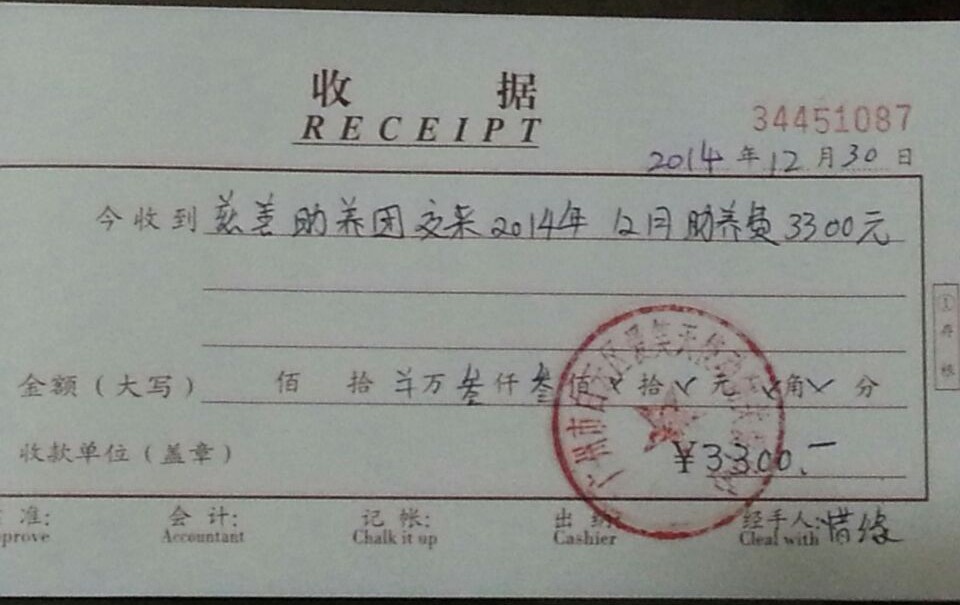 收 据
RECEIPT
34451087
2014 年 12 月 30 日
今收到 慈善助养团交来2014年 12月助养费3300元
金额（大写） 佰 拾 万 叁仟叁佰 拾 元 角 分
收款单位（盖章） ¥3300.-
广州市白云区
准: 会 计: 记 帐: 出 纳: 经手人: 惜缘
prove Accountant Chalk it up Cashier Cleal with